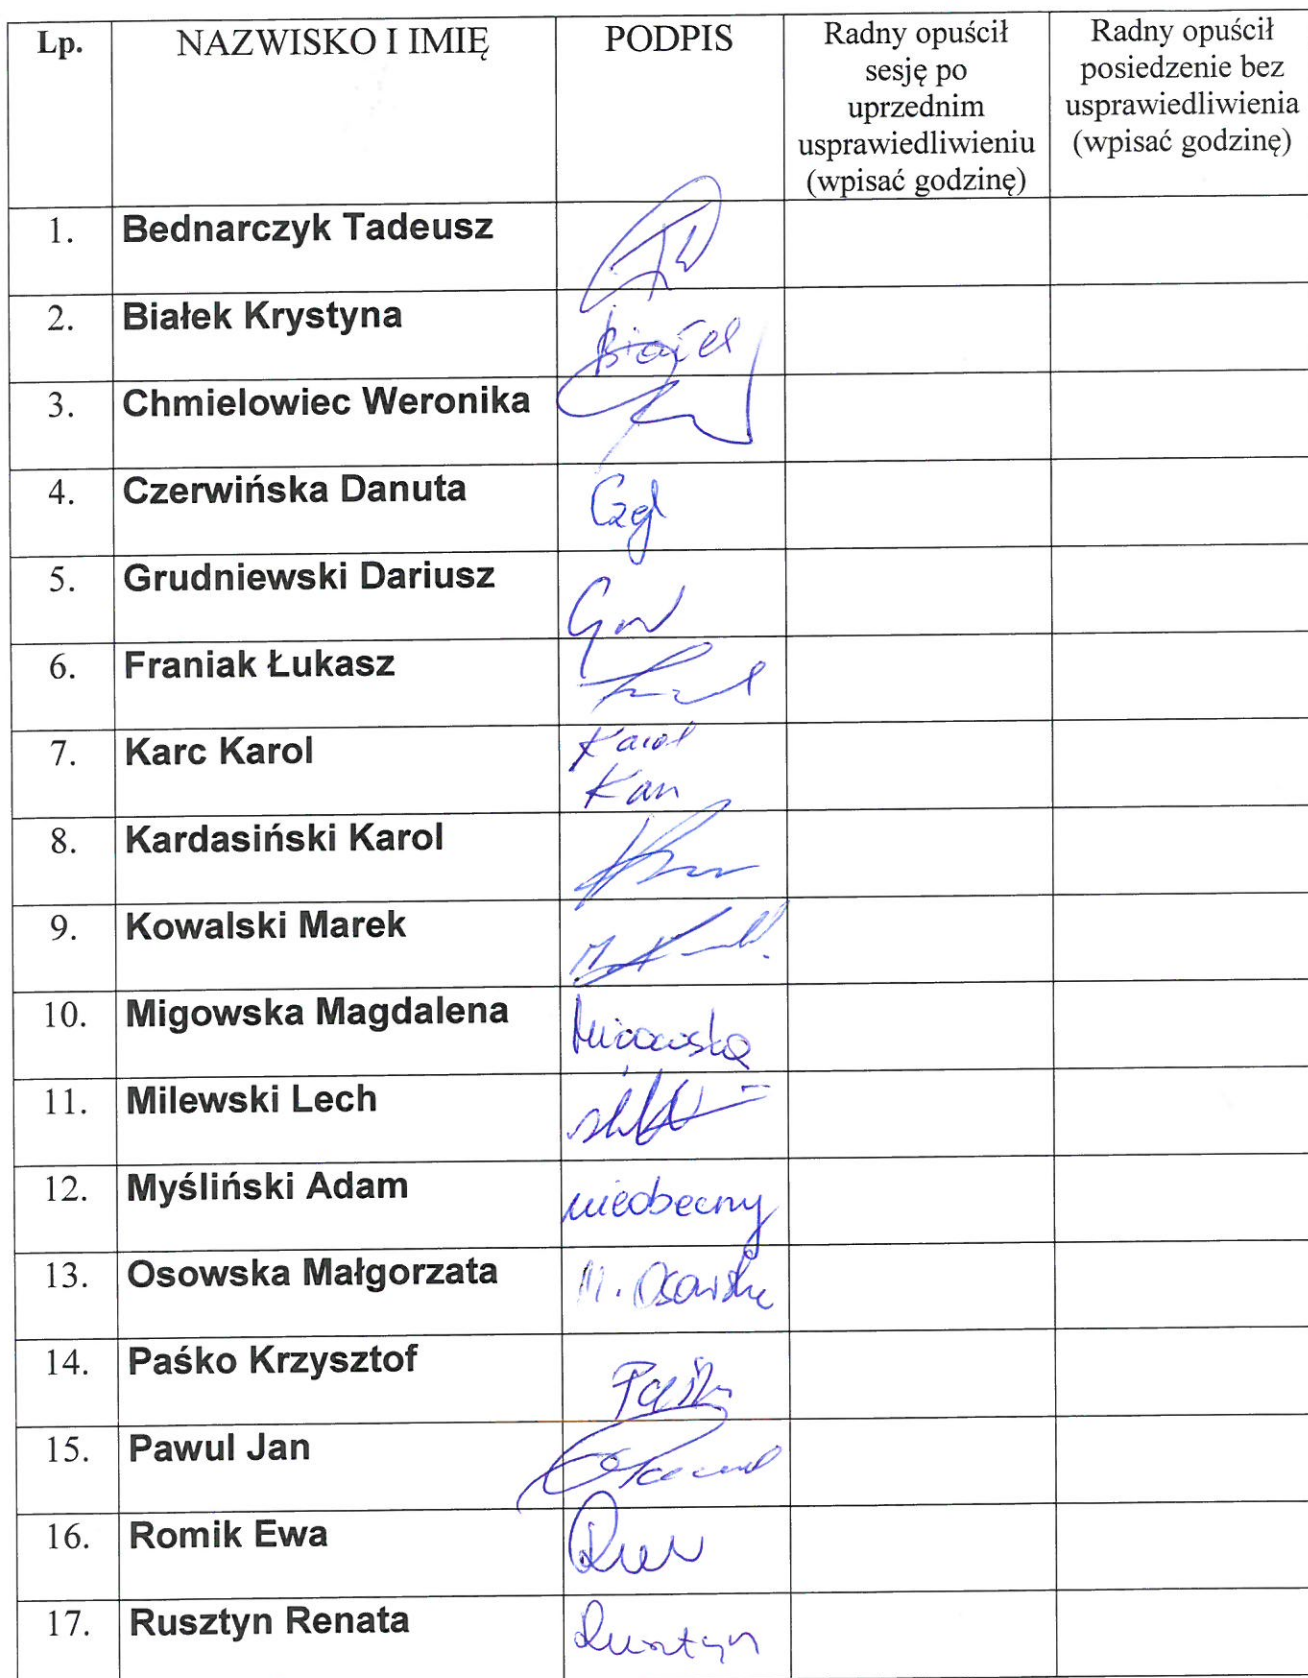 Lp. NAZWISKO I IMIĘ PODPIS Radny opuścił sesję po uprzednim usprawiedliwieniu (wpisać godzinę) Radny opuścił posiedzenie bez usprawiedliwienia (wpisać godzinę)
1. Bednarczyk Tadeusz
2. Białek Krystyna
3. Chmielowiec Weronika
4. Czerwińska Danuta
5. Grudniewski Dariusz
6. Franiak Łukasz
7. Karc Karol Karol
8. Kardasiński Karol
9. Kowalski Marek
10. Migowska Magdalena Migowska
11. Milewski Lech
12. Myśliński Adam nieobecny
13. Osowska Małgorzata M. Osowska
14. Paśko Krzysztof
15. Pawul Jan
16. Romik Ewa
17. Rusztyn Renata Rusztyn